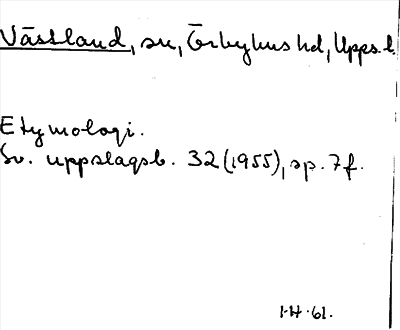 Västland, sn, Örbyhus hd, Upps. l.
Etymologi.
Sv. uppslagsb. 32 (1955), sp. 7 f.